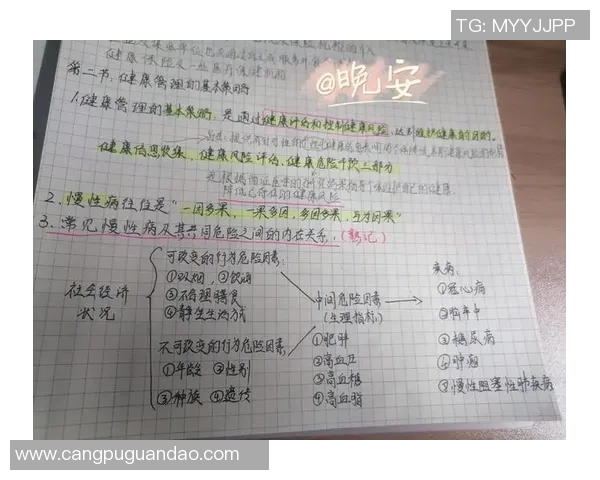 TG: MYYJJPP
健康保险及一些医疗保健机构
@晚安
第二节.健康管理的基本策略
1.健康管理的基本策略:是通过健康评估和控制健康风险,达到维护健康的目的。
健康信息收集、健康风险评估、健康危险干预三部分
降低已存在的健康风险
2.慢性病往往是“一因多果、一果多因、多因多果、互为因果”
3.常见慢性病及其共同危险之间的内在关系.(熟记)
社会经济状况
可改变的行为危险因素:
①吸烟,②饮酒
③不合理膳食
④静坐生活方式
不可改变的行为危险因素:
①年龄 ②性别
③种族 ④遗传
中间危险因素
(生理指标)
①肥胖
②高血压
③高血糖
④高血脂
疾病:
①冠心病
②脑卒中
③糖尿病
④肿瘤
⑤慢性阻塞性肺疾病
www.cangpuguandao.com